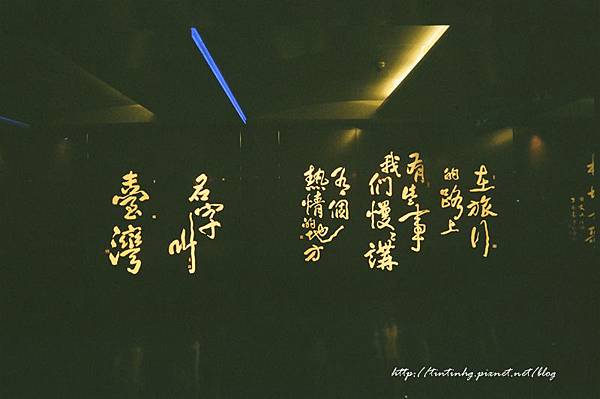 在旅行
的路上
有些事
我們慢慢講
有個
熱情的地方
名字叫
臺灣
http://tintinhg.pixnet.net/blog